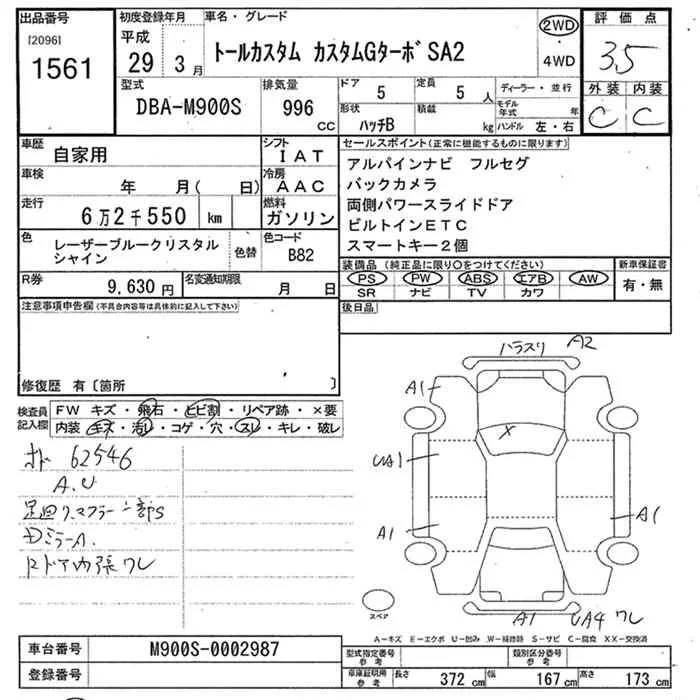 出品番号 初度登録年月 車名・グレード 2WD 評価点
[2096] 平成 トールカスタム カスタムGターボSA2 3.5
1561 29 3月 4WD 外装 内装
型式 排気量 ドア 定員 ディーラー・並行 C C
DBA-M900S 996 cc 5 5 人 モデル年式 年
形状 積載
ハッチB kg ハンドル 左・右
車歴 自家用 シフト IAT セールスポイント(正常に機能するものに限ります)
車検 年 月( 日) 冷房 AAC アルパインナビ フルセグ
走行 6万2千550 km 燃料 ガソリン バックカメラ
両側パワースライドドア
色 レーザーブルークリスタルシャイン 色替 色コード B82 ビルトインETC
スマートキー2個
R券 9,630円 名変通知期限 月 日 装備品(純正品に限り○をつけてください) 新車保証書
PS PW ABS エアB AW 有・無
SR ナビ TV カワ
注意事項申告欄(不具合内容等は具体的に記入して下さい) 後日品
修復歴 有〔箇所 〕
検査員記入欄 FW キズ・飛石・ヒビ割・リペア跡・×要
内装 キズ・汚レ・コゲ・穴・スレ・キレ・破レ
62546
A.U
足回リマフラー一部S
DミラーA.
Rドア内張ワレ
A2
A1
X
UA1
A1
A1
スペア
A1 UA4 ワレ
A-キズ E-エクボ U-凹み W-補修跡 S-サビ C-腐食 XX-交換済
車台番号 M900S-0002987 型式指定番号 参考 類別区分番号 参考
登録番号 車庫証明用 参考 長さ 372 cm 幅 167 cm 高さ 173 cm